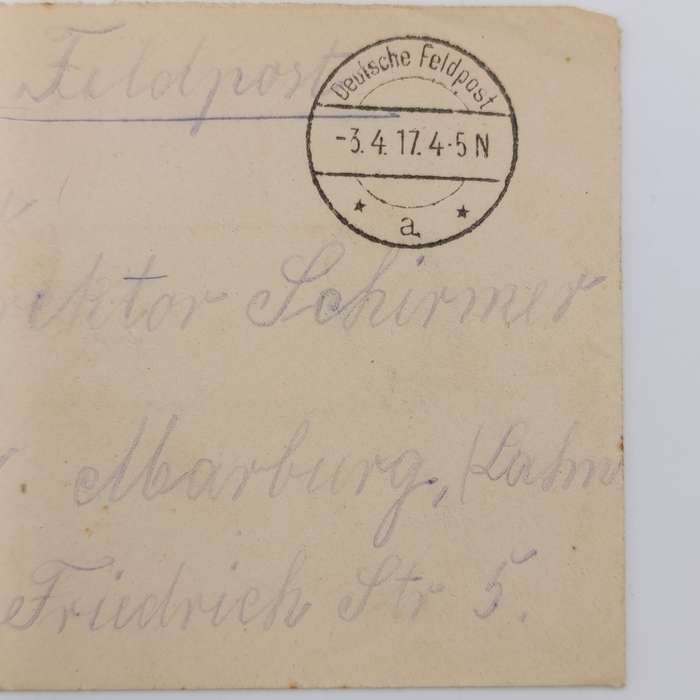 Feldpost
Deutsche Feldpost
-3.4.17.4-5N
* a. *
rektor Schirmer
Marburg, (Lahn
Friedrich Str 5.